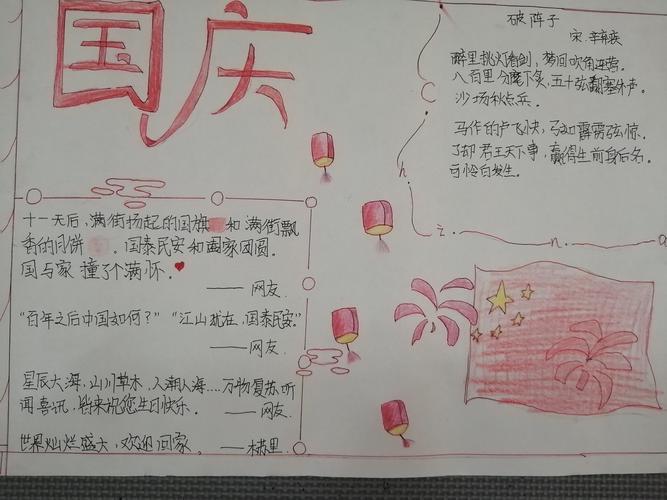 国庆
破阵子
宋.辛弃疾
醉里挑灯看剑,梦回吹角连营。
八百里分麾下炙,五十弦翻塞外声。
沙场秋点兵。
马作的卢飞快,弓如霹雳弦惊。
了却君王天下事,赢得生前身后名。
可怜白发生。
C
h
i
n
a
十一天后,满街扬起的国旗和满街飘
香的月饼。国泰民安和阖家团圆。
国与家 撞了个满怀。
——网友.
“百年之后中国如何?”“江山犹在,国泰民安.”
——网友.
星辰大海,山川草木,人潮人海....万物复苏.听
闻喜讯,皆来祝您生日快乐。——网友.
世界灿烂盛大,欢迎回家。——